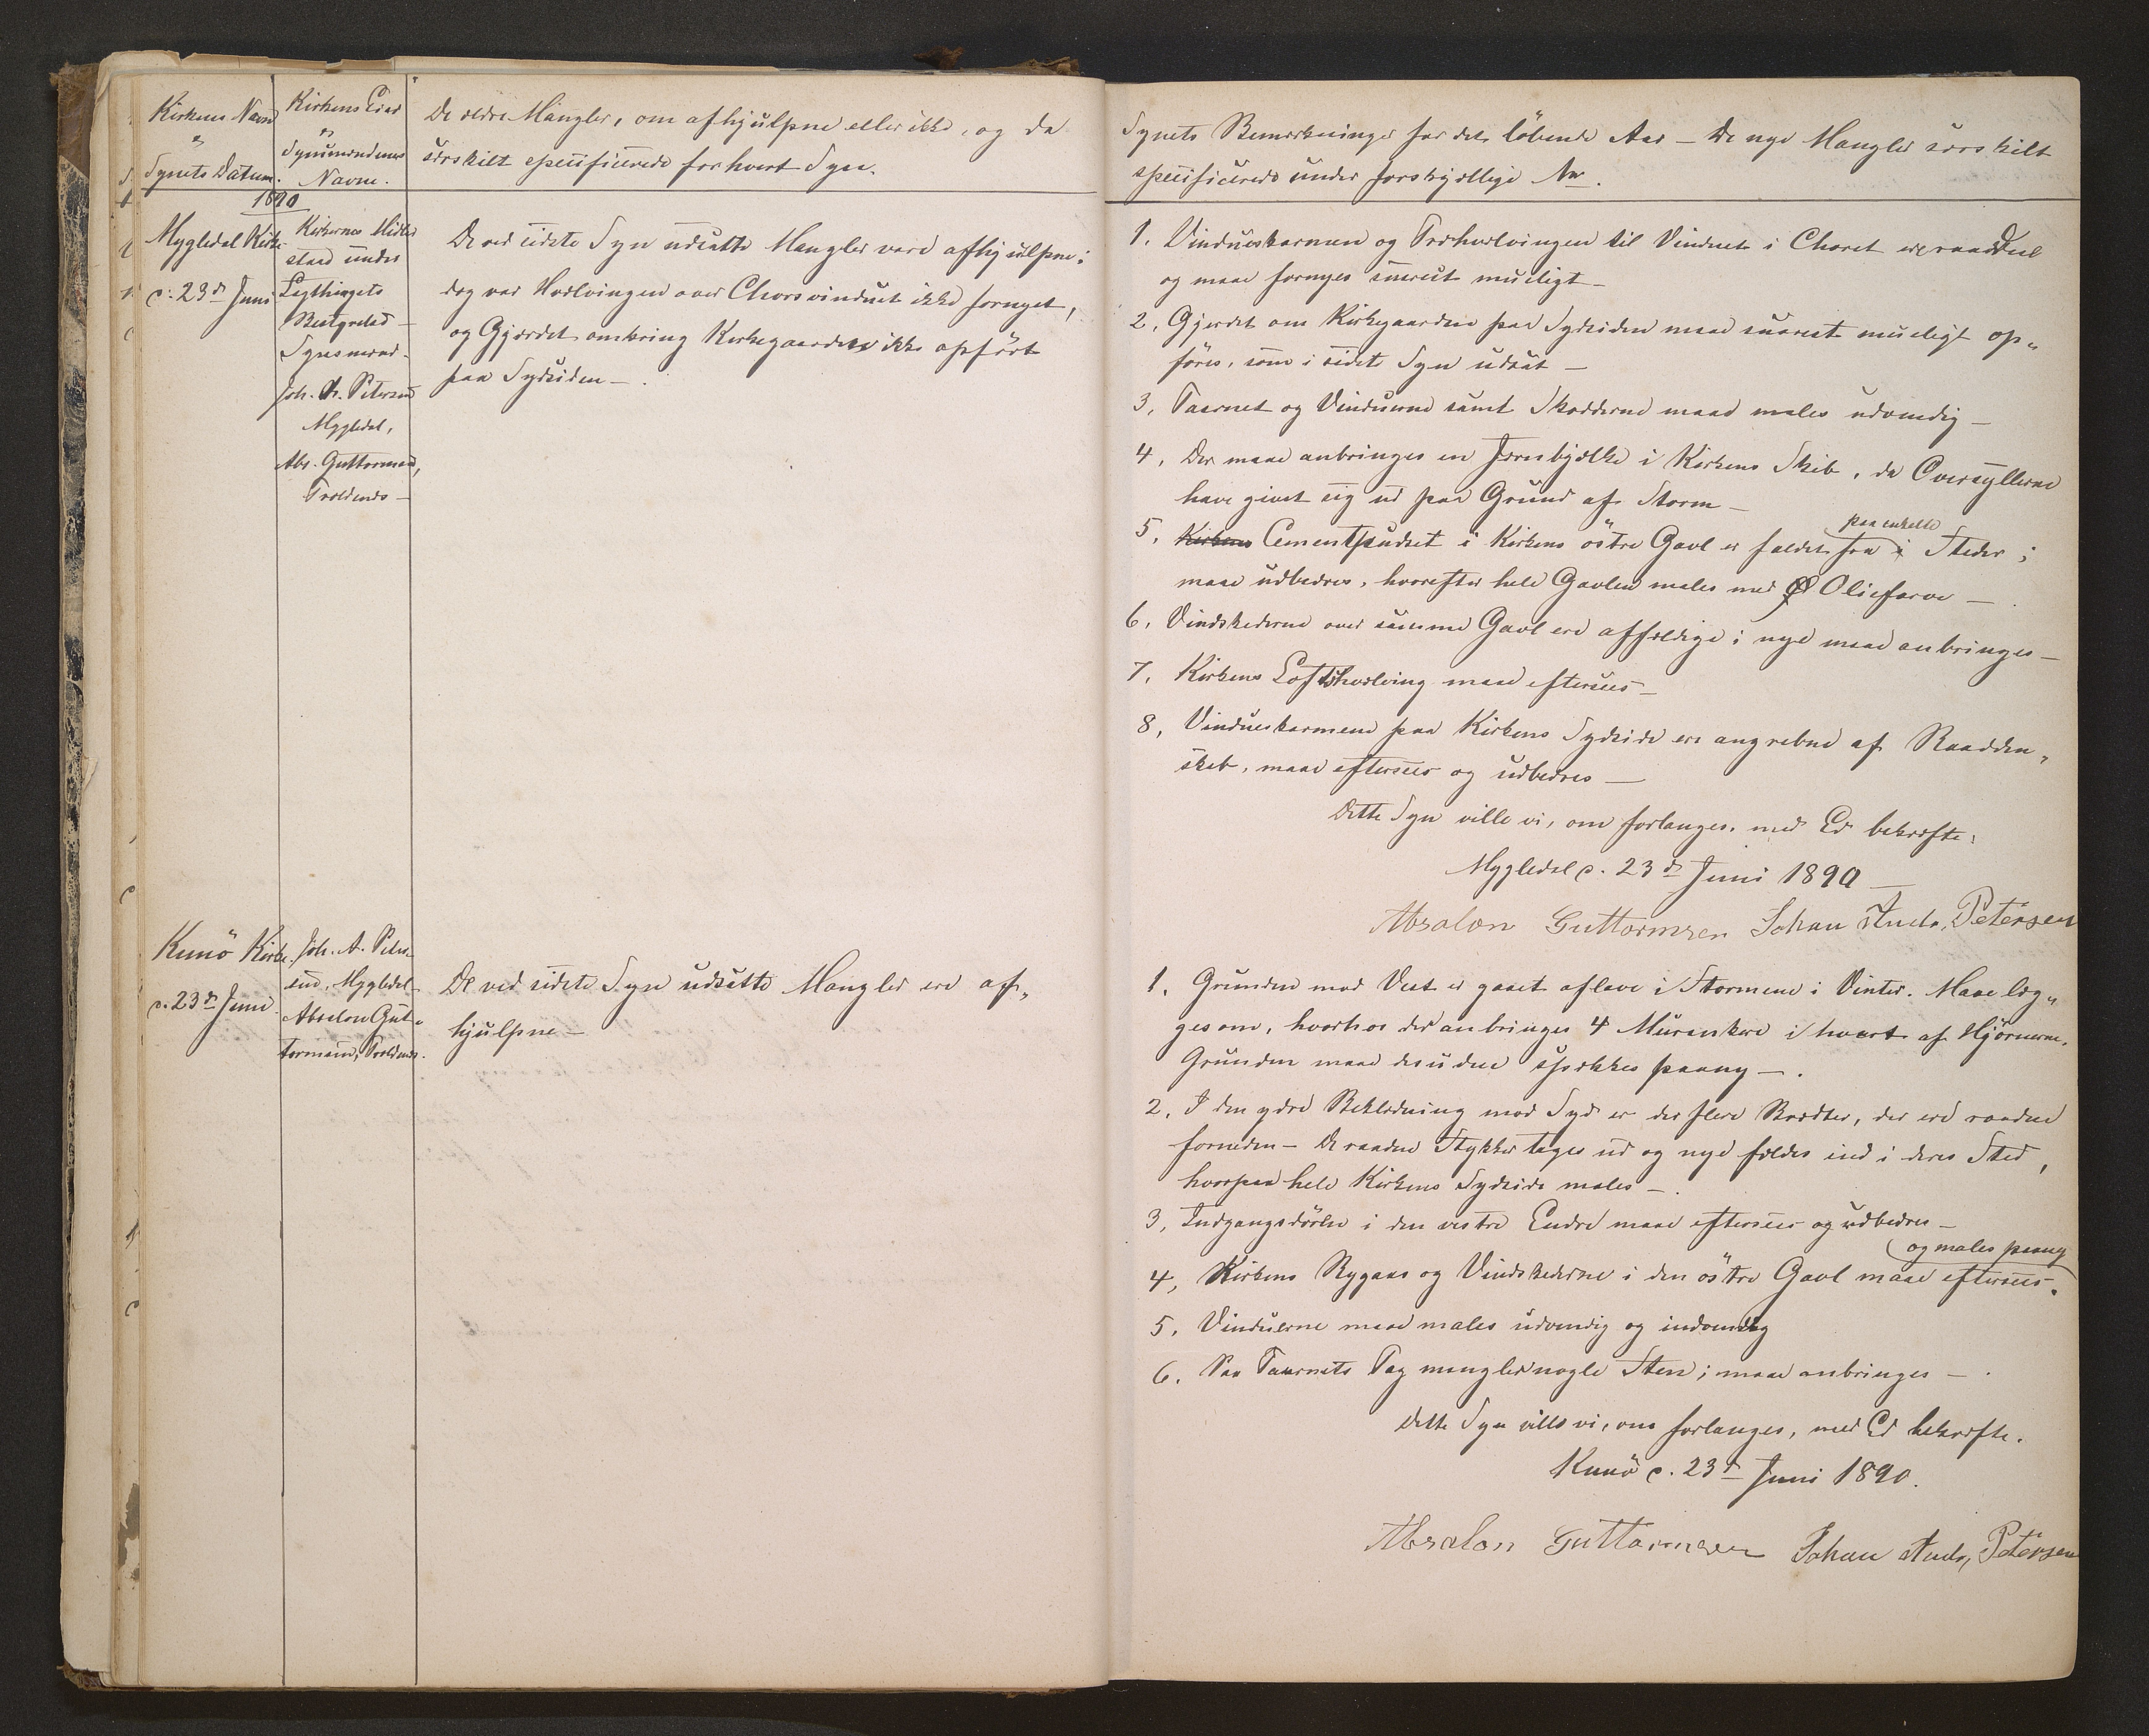 Kirkens Navn
"
Synets Datum.
Kirkens Eier
"
Synsmændenes
Navne.
De ældre Mangler, om afhjulpne eller ikke, og da
særskilt specificerede for hvert Syn.
1890
Mygledal Kirke
d. 23de Juni
Kirkernes Midler
staar under
Lagthingets
Bestyrelse –
Synsmænd –
Joh. A. Petersen
Mygledal,
Abs. Guttormsen,
Troldenæs –
De ved sidste Syn udsatte Mangler vare afhjulpne;
dog var Hvælvingen over Chorsvinduet ikke fornyet,
og Gjærdet omkring Kirkegaarden ikke opført
paa Sydsiden –.
Kunö Kirke
d. 23de Juni
Joh. A. Peter-
sen, Mygledal
Absalon Gut-
tormsen, Troldenæs.
De ved sidste Syn udsatte Mangler ere af-
hjulpne –
Synets Bemærkninger for det löbende Aar – De nye Mangler særskilt
specificerede under forskjellige Nr.
1. Vindueskarmen og Træhvælvingen til Vinduet i Choret ere raadden
og maa fornyes snarest mueligt –
2. Gjærdet om Kirkegaarden paa Sydsiden maa snarest mueligt op-
föres, som i sidste Syn udsat –
3. Taarnet og Vinduerne samt Skodderne maae males udvendig –
4. Der maae anbringes en Jernbjælke i Kirkens Skib, da Oversyllerne
have givet sig ud paa Grund af Storm –
5. Kirkens Cementpudset i Kirkens östre Gavl er faldet fra i paa enkelte Steder;
maae udbedres, hvorefter hele Gavlen males med Oliefarve –.
6. Vindskederne over samme Gavl ere affældige; nye maae anbringes –
7. Kirkens Loftshvælving maae eftersees –
8. Vindueskarmene paa Kirkens Sydside ere angrebne af Raadden-
skab, maae eftersees og udbedres –
Dette Syn ville vi, om forlanges, med Ed bekræfte.
Mygledal d. 23de Juni 1890 –
Absalon Guttormsen Johan Andr. Petersen
1. Grunden mod Vest er gaaet aflave i Stormene i Vinter. Maae læg-
ges om, hvorhos der anbringes 4 Murankere i hvert af Hjörnerne.
Grunden maae desuden spækkes paany –.
2. I den ydre Beklædning mod Syd er der flere Brædder, der ere raadne
forneden – De raadne Stykker tages ud og nye fældes ind i deres Sted,
hvorpaa hele Kirkens Sydside males –.
3. Indgangsdören i den vestre Ende maae eftersees og udbedres –
4. Kirkens Rygaas og Vindskederne i den östre Gavl maae eftersees og males paany.
5. Vinduerne maae males udvendig og indvendig
6. Paa Taarnets Tag mangler nogle Sten; maae anbringes –.
Dette Syn ville vi, om forlanges, med Ed bekræfte.
Kunö d. 23de Juni 1890.
Absalon Guttormsen Johan Andr. Petersen